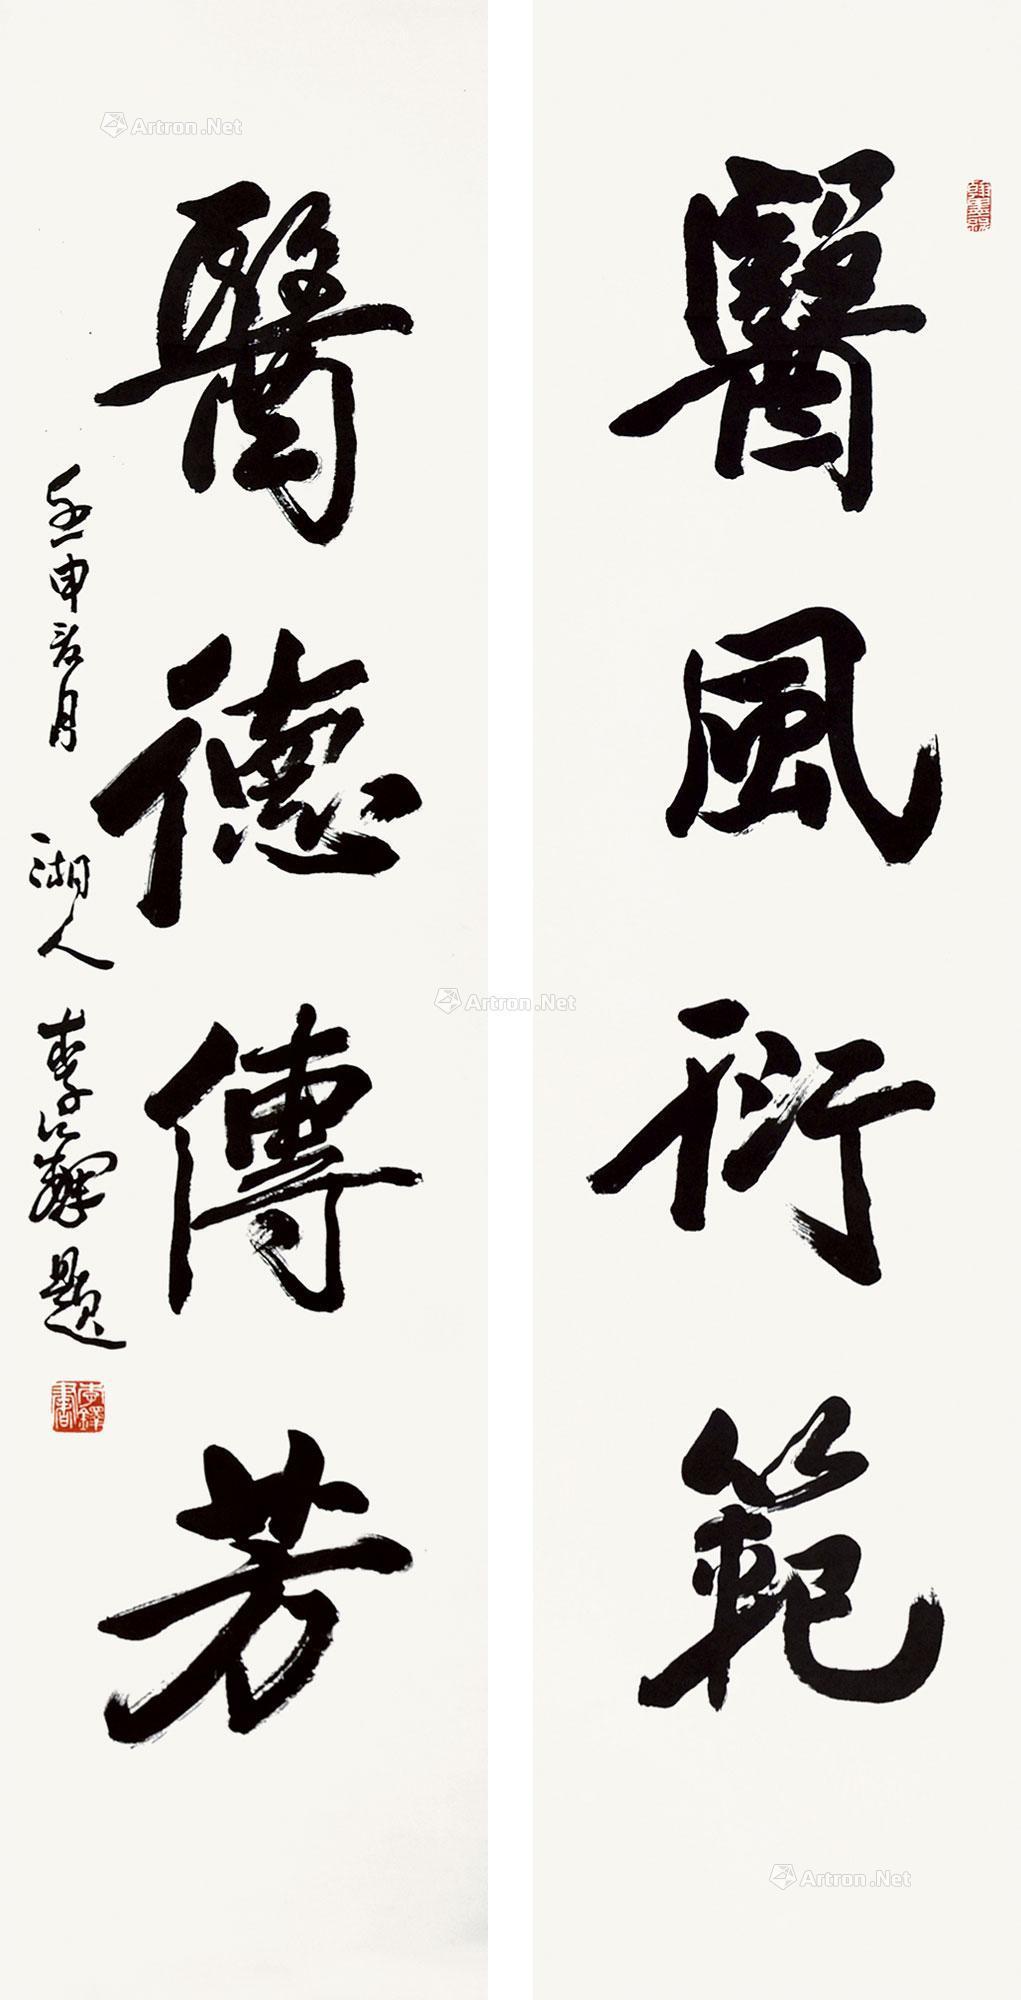 醫風衍範
醫德傳芳
壬申敬月
湖人
李鐸題
Artron.Net
Artron.Net
Artron.Net